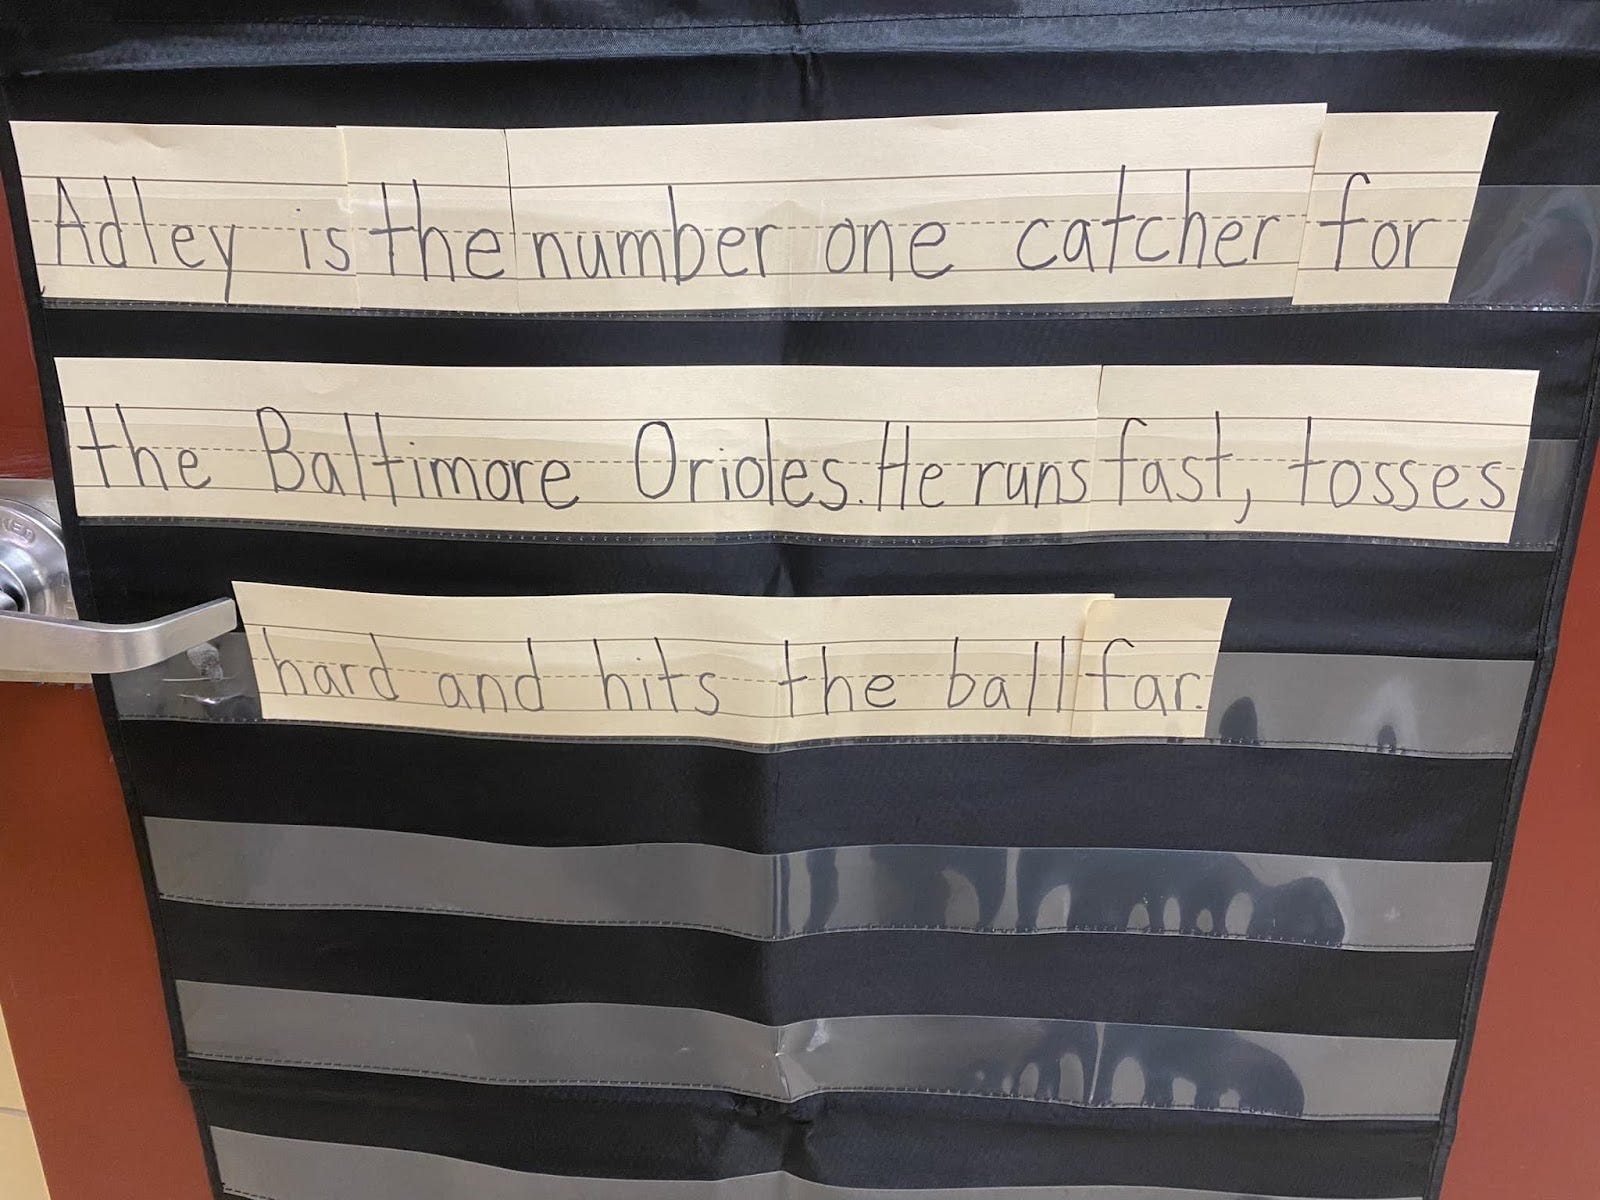 Adley is the number one catcher for
the Baltimore Orioles. He runs fast, tosses
hard and hits the ball far.